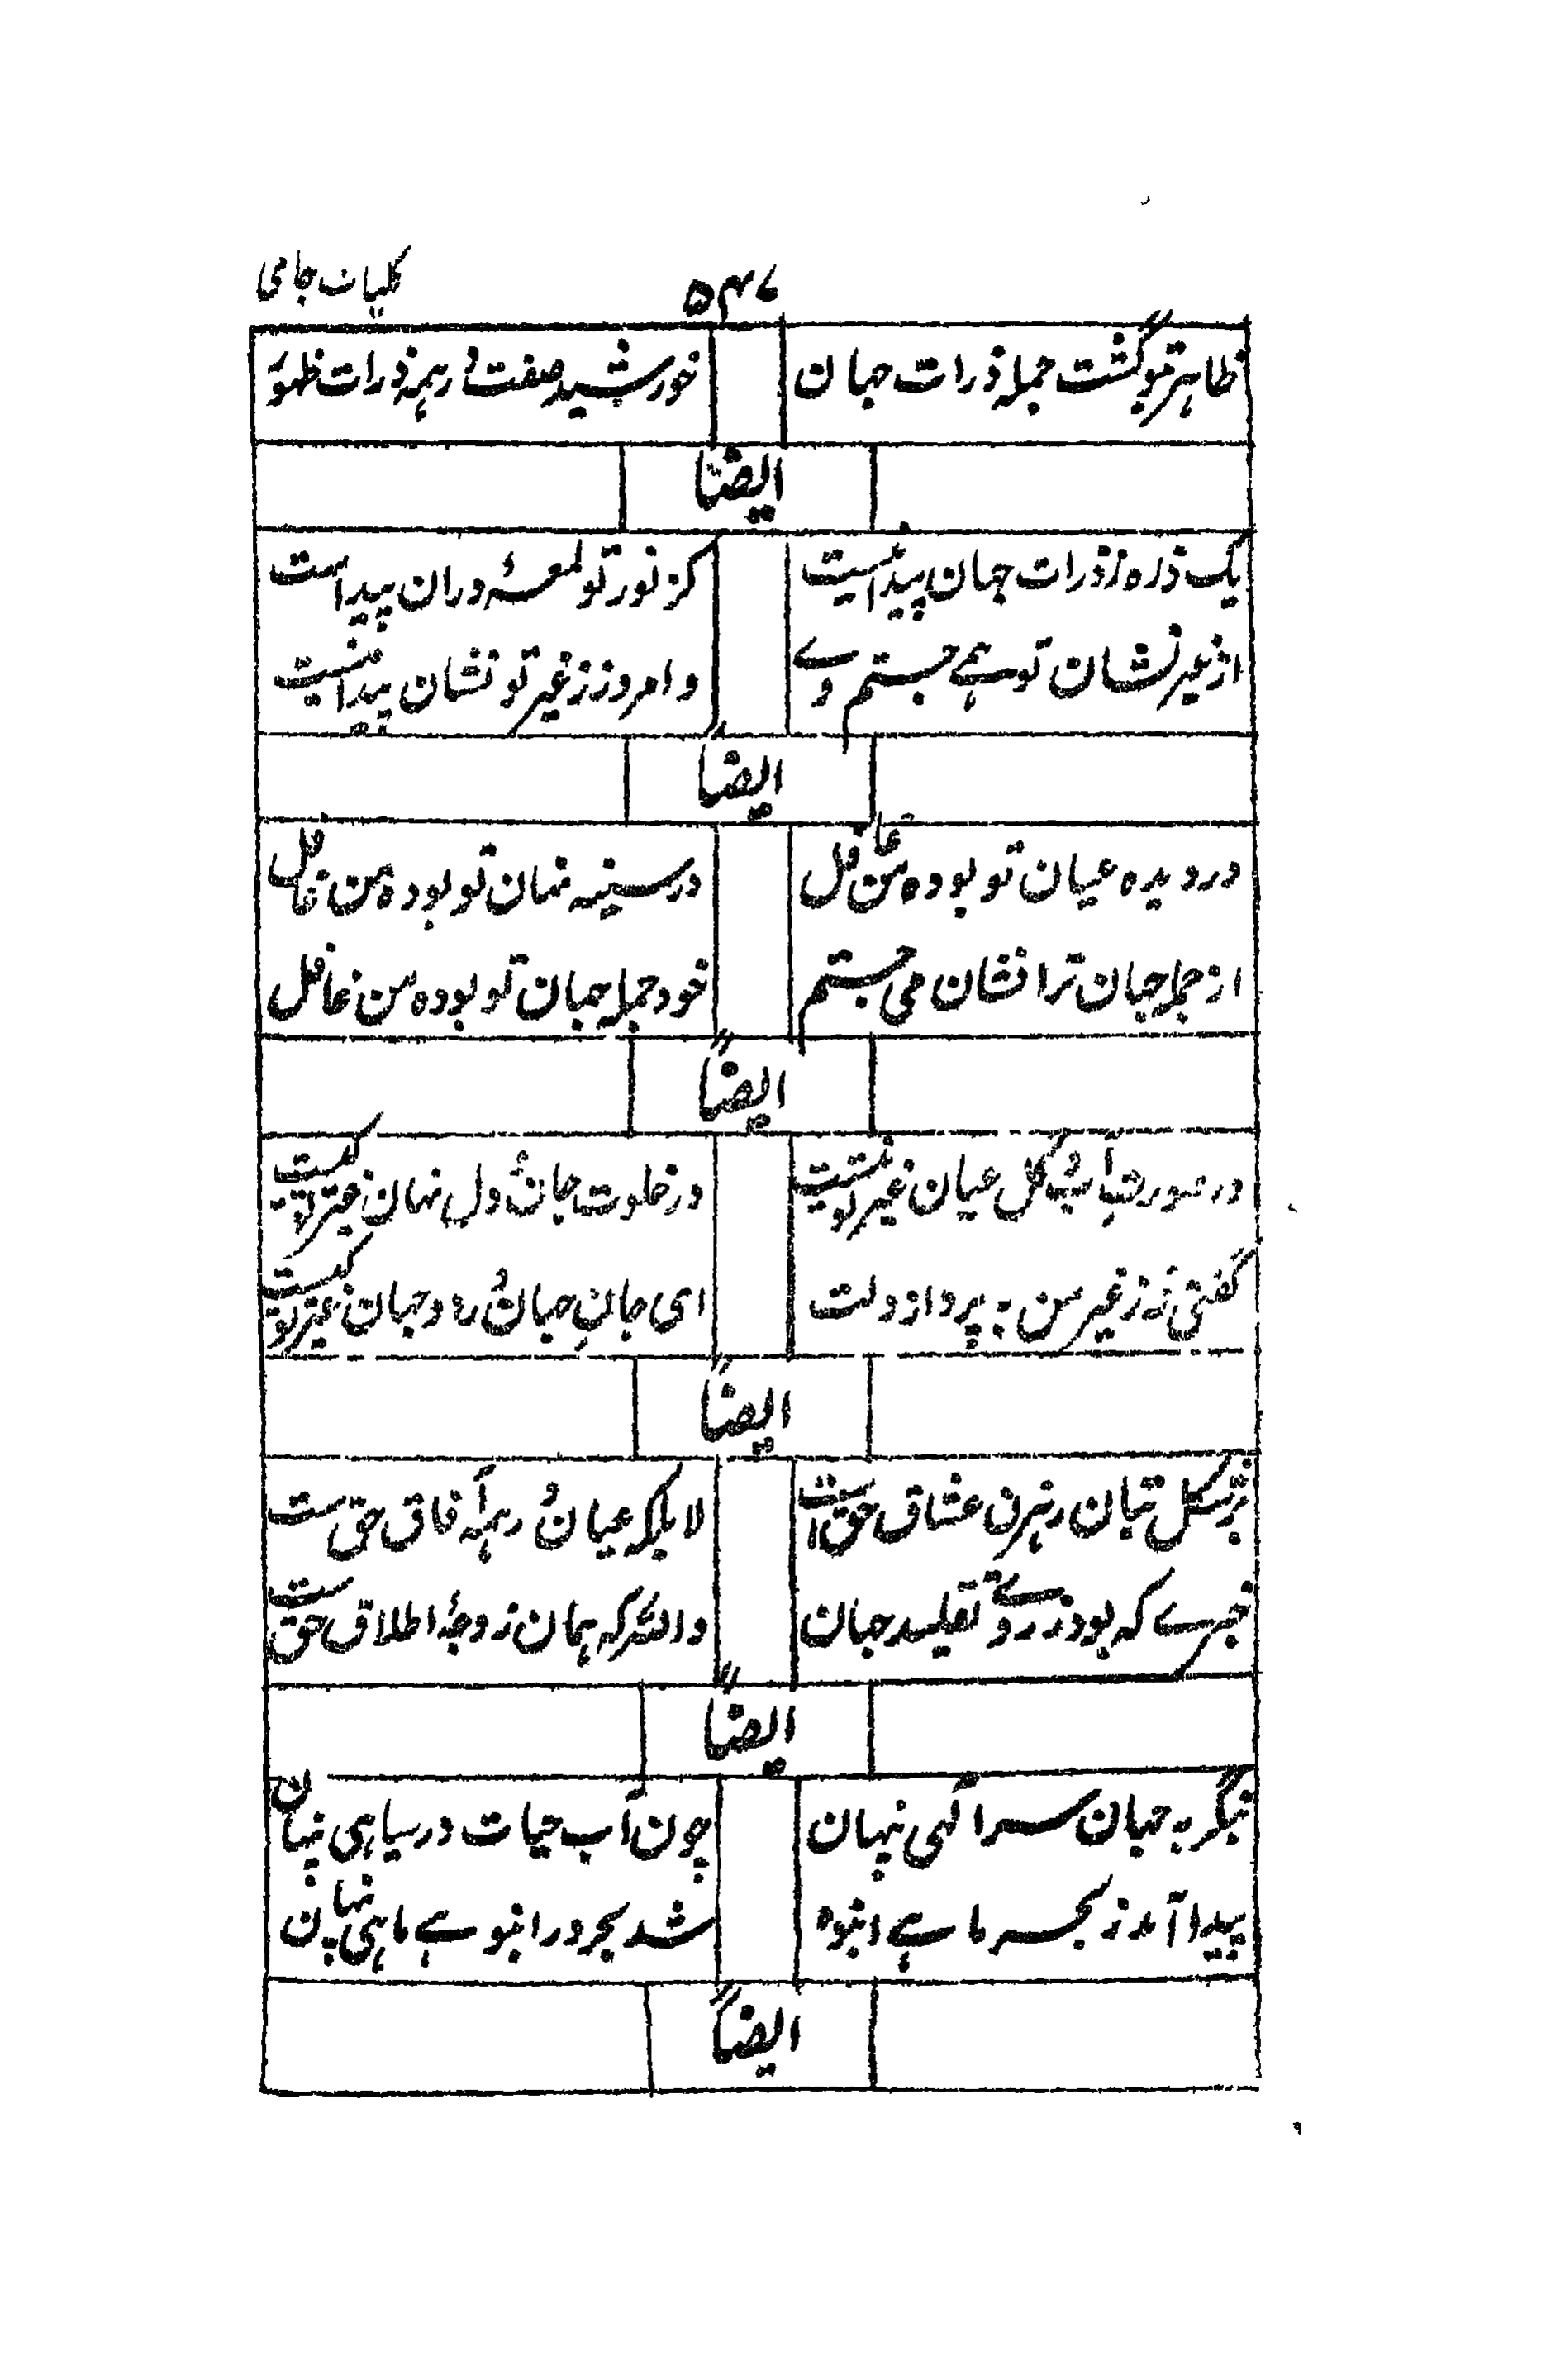 ۵۴۷
کلیات جامی
ظاهر بتو گشت جمله ذرات جهان
خورشید صفت در همه ذرات ظهور
ایضاً
یک ذره ز ذرات جهان پیدا نیست
کز نور تو لمعهٔ دران پیداست
از غیر نشان تو همے جستم دے
و امروز ز غیر تو نشان پیدا نیست
ایضاً
در دیده عیان تو بوده من غافل
در سینه نهان تو بوده من غافل
از جمله جهان ترا نشان می جستم
خود جمله جهان تو بوده من غافل
ایضاً
در صورت آب و گل عیان غیر تو نیست
در خلوت جان و دل نهان غیر تو کیست
گفتی که ز غیر من به پرداز دلت
ای جانِ جهان در دو جهان غیر تو کیست
ایضاً
بر شکل بتان رهزن عشاق حق است
لا بلکه عیان در همه آفاق حق ست
چیزے که بود ز روے تقلید جهان
والله که همان ز وجهٔ اطلاق حق ست
ایضاً
بنگر به جهان سر الهی پنهان
چون آب حیات در سیاهی پنهان
پیدا آمد ز بحر ماهے انبوه
شد بحر در انبوهے ماهی پنهان
ایضاً